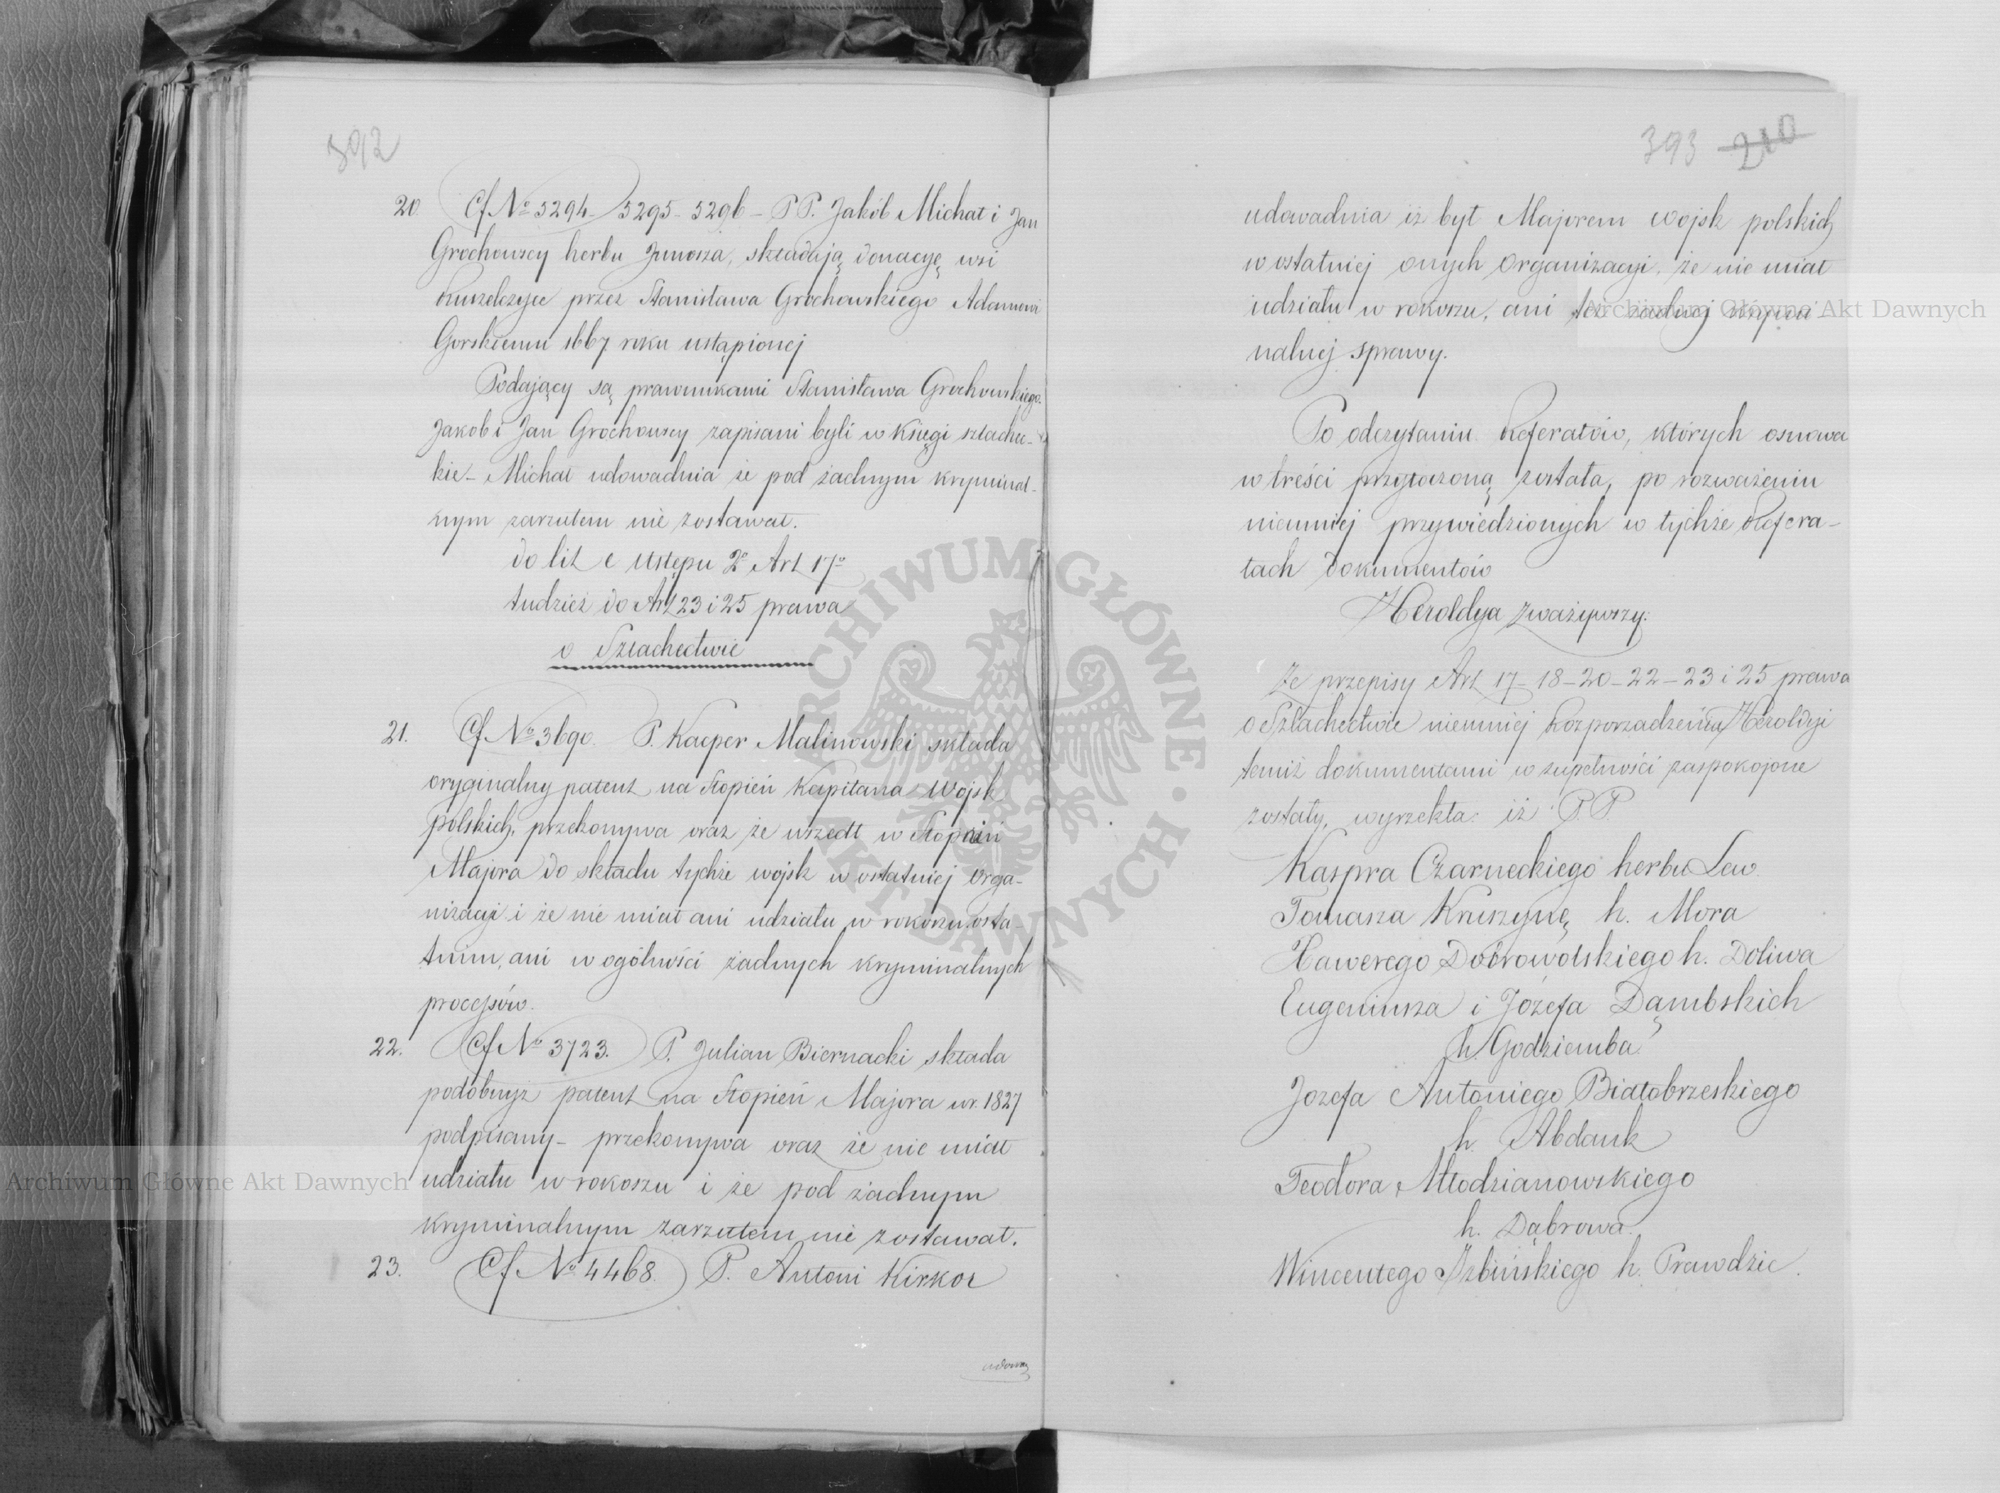 392
20. Cf № 5294 – 5295 – 5296 – PP. Jakób Michał i Jan
Grochowscy herbu Junosza, składają donacyę wsi
przez Stanisława Grochowskiego Adamowi
Gorskiemu 1667 roku ustąpionej
Podający są prawnukami Stanisława Grochowskiego.
Jakob i Jan Grochowscy zapisani byli w księgi szlachec-
kie – Michał udowadnia że pod żadnym kryminal-
nym zarzutem nie zostawał.
do lit c Ustępu 2º Art 17º
tudzież do Art 23 i 25 prawa
o Szlachectwie
21. Cf № 3690. P. Kacper Malinowski składa
oryginalny patent na Stopień Kapitana Wojsk
polskich, przekonywa oraz że wszedł w Stopień
Majora do składu tychże wojsk w ostatniej orga-
nizacji i że nie miał ani udziału w rokoszu osta-
tnim, ani w ogólności żadnych kryminalnych
processów.
22. Cf № 3723. P. Julian Biernacki składa
podobnyż patent na Stopień Majora w r. 1827
podpisany – przekonywa oraz że nie miał
udziału w rokoszu i że pod żadnym
kryminalnym zarzutem nie zostawał.
23. Cf № 4468. P. Antoni Kirkor
udowa
393 210
udowadnia iż był Majorem wojsk polskich
w ostatniej onych Organizacyi, że nie miał
udziału w rokoszu, ani też żadnej krymi-
nalnej sprawy.
Po odczytaniu Referatów, których osnowa
w treści przytoczoną została, po rozważeniu
niemniej przywiedzionych w tychże Refera-
tach dokumentów
Heroldya zważywszy:
Że przepisy Art 17 – 18 – 20 – 22 – 23 i 25 prawa
o Szlachectwie niemniej Rozporządzenia Heroldyi
temiż dokumentami w zupełności zaspokojone
zostały, wyrzekła: iż PP.
Kaspra Czarneckiego herbu Lew.
Tomasza Kruszynę h. Mora
Xawerego Dobrowolskiego h. Doliwa
Eugeniusza i Józefa Dąmbskich
h. Godziemba
Jozefa Antoniego Białobrzeskiego
h. Abdank
Teodora Młodzianowskiego
h. Dąbrowa.
Wincentego Izbińskiego h. Prawdzic.
Archiwum Główne Akt Dawnych
Archiwum Główne Akt Dawnych
ARCHIWUM GŁÓWNE · AKT DAWNYCH ·